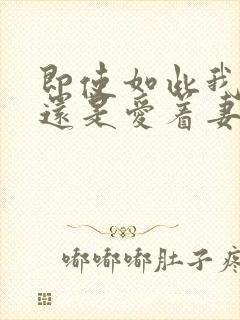 即使如此我
還是愛着妻
嘟嘟嘟肚子疼